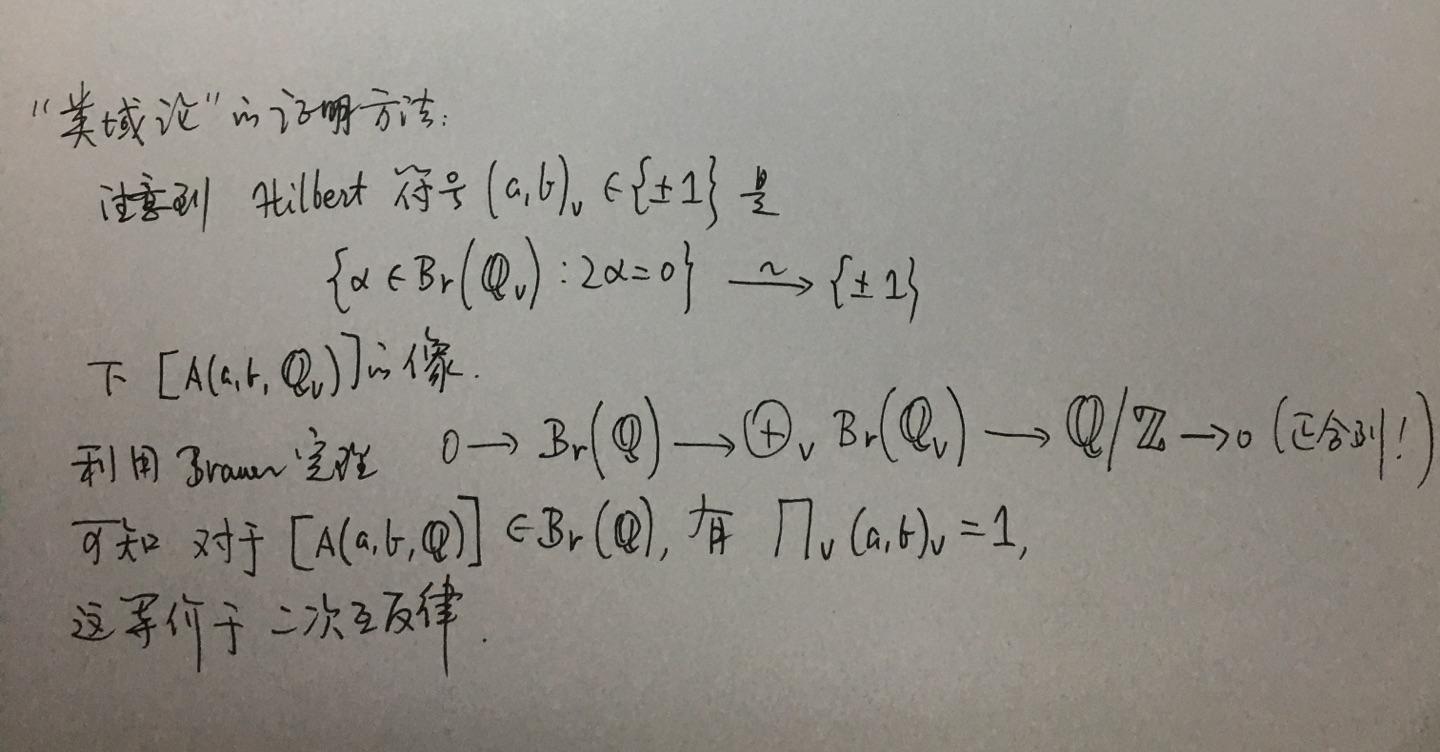 “类域论”的证明方法:
注意到 Hilbert 符号 (a,b)_v ∈ {±1} 是
{α ∈ Br(ℚ_v) : 2α=0} ⥲ {±1}
下 [A(a,b,ℚ_v)]的像.
利用 Brauer 定理 0 → Br(ℚ) → ⊕_v Br(ℚ_v) → ℚ/ℤ → 0 (正合列!)
可知 对于 [A(a,b,ℚ)] ∈ Br(ℚ), 有 ∏_v (a,b)_v = 1,
这等价于 二次互反律.